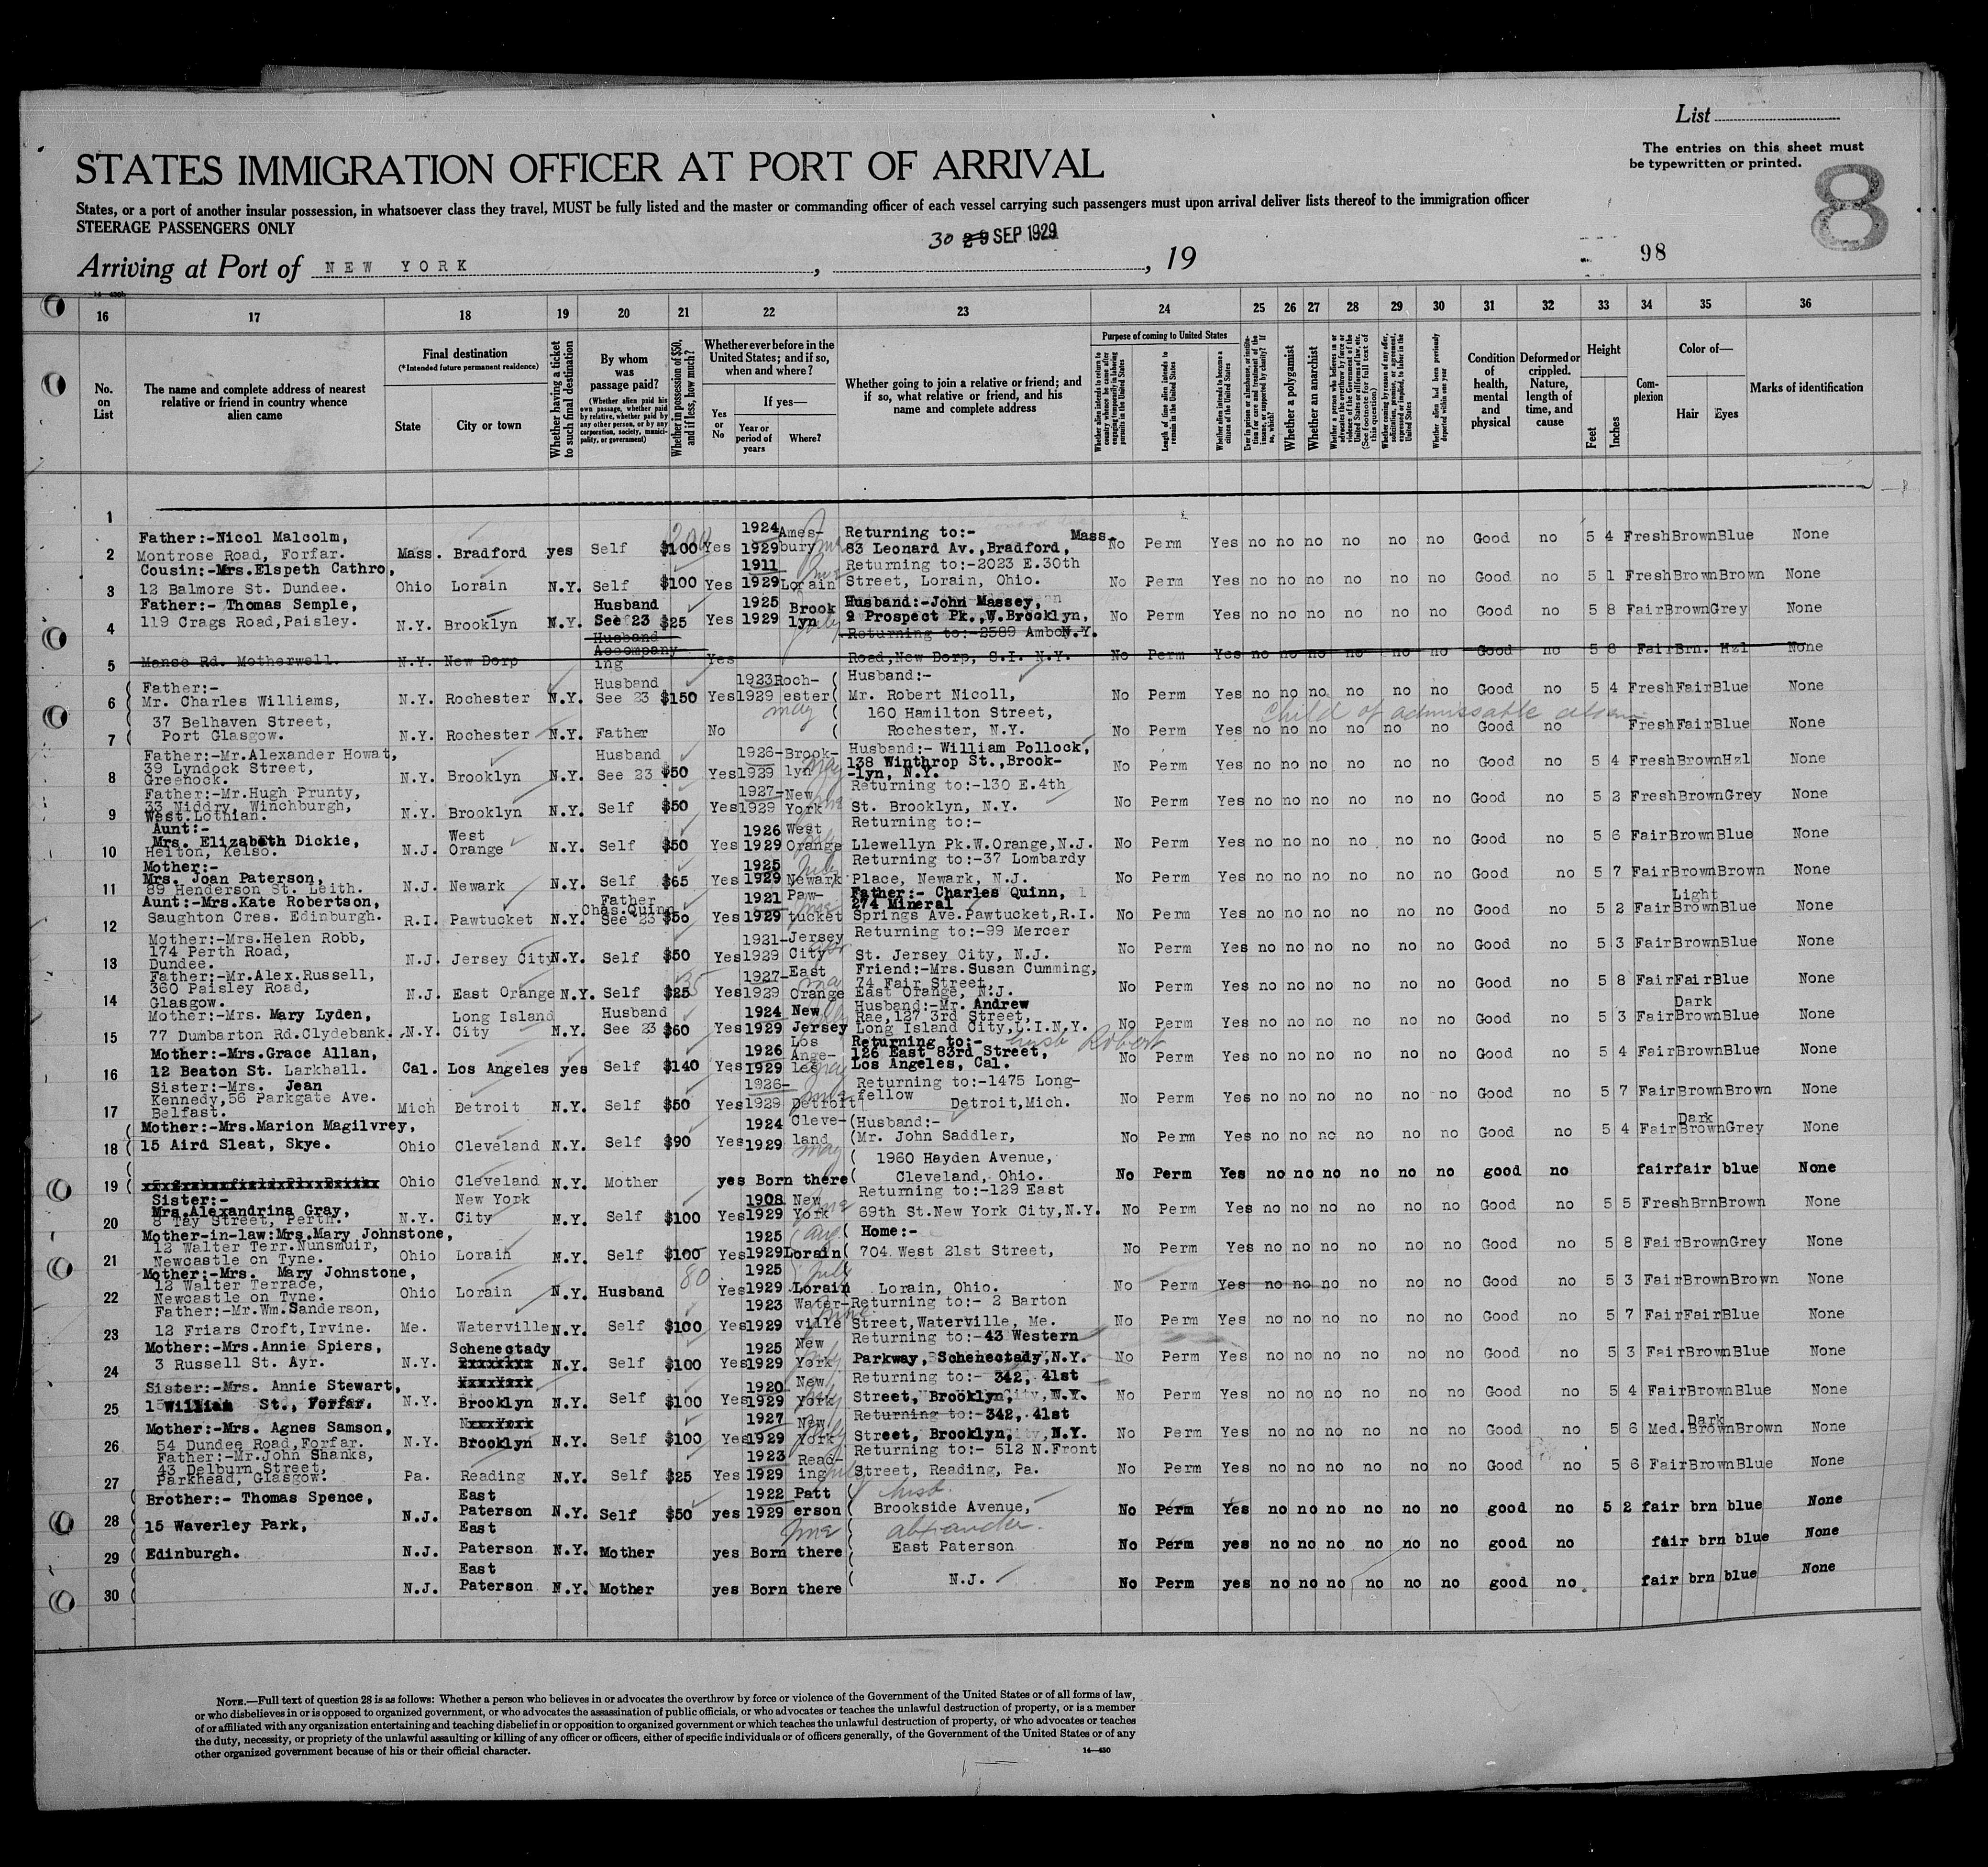 List
The entries on this sheet must
be typewritten or printed.
8
STATES IMMIGRATION OFFICER AT PORT OF ARRIVAL
States, or a port of another insular possession, in whatsoever class they travel, MUST be fully listed and the master or commanding officer of each vessel carrying such passengers must upon arrival deliver lists thereof to the immigration officer
STEERAGE PASSENGERS ONLY
30 29 SEP 1929
Arriving at Port of NEW YORK, , 19
98
16 17 18 19 20 21 22 23 24 25 26 27 28 29 30 31 32 33 34 35 36
No. on List
The name and complete address of nearest relative or friend in country whence alien came
Final destination
(*Intended future permanent residence)
State
City or town
Whether having a ticket to such final destination
By whom was passage paid?
(Whether alien paid his own passage, whether paid by relative, whether paid by any other person, or by any corporation, society, municipality, or government)
Whether in possession of $50, and if less, how much?
Whether ever before in the United States; and if so, when and where?
Yes or No
If yes—
Year or period of years
Where?
Whether going to join a relative or friend; and if so, what relative or friend, and his name and complete address
Purpose of coming to United States
Length of time alien intends to remain in the United States
Whether alien intends to become a citizen of the United States
Whether a polygamist
Whether an anarchist
Condition of health, mental and physical
Deformed or crippled. Nature, length of time, and cause
Height
Feet
Inches
Complexion
Color of—
Hair
Eyes
Marks of identification
1
2 Father:-Nicol Malcolm, Montrose Road, Forfar. Mass. Bradford yes Self $100 Yes 1924 1929 Amesbury Returning to:- 83 Leonard Av.,Bradford, Mass. No Perm Yes no no no no no no Good no 5 4 Fresh Brown Blue None
3 Cousin:-Mrs.Elspeth Cathro, 12 Balmore St. Dundee. Ohio Lorain N.Y. Self $100 Yes 1911 1929 Lorain Returning to:-2023 E.30th Street, Lorain, Ohio. No Perm Yes no no no no no no Good no 5 1 Fresh Brown Brown None
4 Father:- Thomas Semple, 119 Crags Road,Paisley. N.Y. Brooklyn N.Y. Husband See 23 $25 Yes 1925 1929 Brooklyn Husband:-John Massey, 9 Prospect Pk.,W.Brooklyn, N.Y. No Perm Yes no no no no no no Good no 5 8 Fair Brown Grey None
5 Manse Rd. Motherwell. N.Y. New Dorp Husband Accompanying Yes Returning to:-2589 Amboy Road,New Dorp, S.I. N.Y. No Perm Yes no no no no no no Good no 5 8 Fair Brn. Hzl None
6 Father:- Mr. Charles Williams, N.Y. Rochester N.Y. Husband See 23 $150 Yes 1923 1929 Rochester may Husband:- Mr. Robert Nicoll, No Perm Yes no no no no no no Good no 5 4 Fresh Fair Blue None
Child of admissable alien
7 37 Belhaven Street, Port Glasgow. N.Y. Rochester N.Y. Father No 160 Hamilton Street, Rochester, N.Y. No Perm Yes no no no no no no Good no Fresh Fair Blue None
8 Father:-Mr.Alexander Howat, 39 Lyndock Street, Greenock. N.Y. Brooklyn N.Y. Husband See 23 $50 Yes 1926-1929 Brooklyn Husband:- William Pollock, 138 Winthrop St.,Brook--lyn, N.Y. No Perm Yes no no no no no no Good no 5 4 Fresh Brown Hzl None
9 Father:-Mr.Hugh Prunty, 33 Niddry, Winchburgh, West.Lothian. N.Y. Brooklyn N.Y. Self $50 Yes 1927-1929 New York Returning to:-130 E.4th St. Brooklyn, N.Y. No Perm Yes no no no no no no Good no 5 2 Fresh Brown Grey None
10 Aunt:- Mrs. Elizabeth Dickie, Heiton, Kelso. N.J. West Orange N.Y. Self $50 Yes 1926 1929 West Orange Returning to:- Llewellyn Pk.W.Orange,N.J. No Perm Yes no no no no no no Good no 5 6 Fair Brown Blue None
11 Mother:- Mrs. Joan Paterson, 89 Henderson St. Leith. N.J. Newark N.Y. Self $65 Yes 1925 1929 Newark Returning to:-37 Lombardy Place, Newark, N.J. No Perm Yes no no no no no no Good no 5 7 Fair Brown Brown None
12 Aunt:-Mrs.Kate Robertson, Saughton Cres. Edinburgh. R.I. Pawtucket N.Y. Father Chas.Quinn See 23 $50 Yes 1921 1929 Pawtucket Father:- Charles Quinn, 274 Mineral Springs Ave.Pawtucket,R.I. No Perm Yes no no no no no no Good no 5 2 Fair Light Brown Blue None
13 Mother:-Mrs.Helen Robb, 174 Perth Road, Dundee. N.J. Jersey City N.Y. Self $50 Yes 1921-1929 Jersey City Returning to:-99 Mercer St. Jersey City, N.J. No Perm Yes no no no no no no Good no 5 3 Fair Brown Blue None
14 Father:-Mr.Alex.Russell, 360 Paisley Road, Glasgow. N.J. East Orange N.Y. Self $25 Yes 1927-1929 East Orange Friend:-Mrs.Susan Cumming, 74 Fair Street, East Orange, N.J. No Perm Yes no no no no no no Good no 5 8 Fair Fair Blue None
15 Mother:-Mrs. Mary Lyden, 77 Dumbarton Rd.Clydebank. N.Y. Long Island City N.Y. Husband See 23 $60 Yes 1924 1929 New Jersey Husband:-Mr. Andrew Rae,127 3rd Street, Long Island City,L.I.N.Y. No Perm Yes no no no no no no Good no 5 3 Fair Dark Brown Blue None
16 Mother:-Mrs.Grace Allan, 12 Beaton St. Larkhall. Cal. Los Angeles yes Self $140 Yes 1926 1929 Los Angeles Returning to:- husb Robert 126 East 83rd Street, Los Angeles, Cal. No Perm Yes no no no no no no Good no 5 4 Fair Brown Blue None
17 Sister:-Mrs. Jean Kennedy,56 Parkgate Ave. Belfast. Mich Detroit N.Y. Self $50 Yes 1926-1929 Detroit Returning to:-1475 Longfellow Detroit,Mich. No Perm Yes no no no no no no Good no 5 7 Fair Brown Brown None
18 Mother:-Mrs.Marion Magilvrey, 15 Aird Sleat, Skye. Ohio Cleveland N.Y. Self $90 Yes 1924 1929 Cleveland may Husband:- Mr. John Saddler, No Perm Yes no no no no no no Good no 5 4 Fair Dark Brown Grey None
19 Ohio Cleveland N.Y. Mother yes Born there 1960 Hayden Avenue, Cleveland, Ohio. No Perm Yes no no no no no no good no fair fair blue None
20 Sister:- Mrs.Alexandrina Gray, 8 Tay Street, Perth. N.Y. New York City N.Y. Self $100 Yes 1908 1929 New York Returning to:-129 East 69th St.New York City,N.Y. No Perm Yes no no no no no no Good no 5 5 Fresh Brn Brown None
21 Mother-in-law:Mrs.Mary Johnstone, 12 Walter Terr.Nunsmuir, Newcastle on Tyne. Ohio Lorain N.Y. Self $100 Yes 1925 1929 Lorain aug Home:- 704 West 21st Street, No Perm Yes no no no no no no Good no 5 8 Fair Brown Grey None
22 Mother:-Mrs. Mary Johnstone, 12 Walter Terrace, Newcastle on Tyne. Ohio Lorain N.Y. Husband 80 Yes 1925 1929 Lorain July Lorain, Ohio. No Perm Yes no no no no no no Good no 5 3 Fair Brown Brown None
23 Father:-Mr.Wm.Sanderson, 12 Friars Croft,Irvine. Me. Waterville N.Y. Self $100 Yes 1923 1929 Waterville June Returning to:- 2 Barton Street,Waterville, Me. No Perm Yes no no no no no no Good no 5 7 Fair Fair Blue None
24 Mother:-Mrs.Annie Spiers, 3 Russell St. Ayr. N.Y. Schenectady N.Y. Self $100 Yes 1925 1929 New York Returning to:-43 Western Parkway, Schenectady,N.Y. No Perm Yes no no no no no no Good no 5 3 Fair Brown Blue None
25 Sister:-Mrs. Annie Stewart, 1 William St., Forfar. N.Y. Brooklyn N.Y. Self $100 Yes 1920 1929 New York Returning to:- 342, 41st Street, Brooklyn, N.Y. No Perm Yes no no no no no no Good no 5 4 Fair Brown Blue None
26 Mother:-Mrs. Agnes Samson, 54 Dundee Road,Forfar. N.Y. Brooklyn N.Y. Self $100 Yes 1927 1929 New York Returning to:-342, 41st Street, Brooklyn, N.Y. No Perm Yes no no no no no no Good no 5 6 Med. Dark Brown Brown None
27 Father:-Mr.John Shanks, 43 Delburn Street, Parkhead, Glasgow. Pa. Reading N.Y. Self $25 Yes 1923 1929 Reading Returning to:- 512 N.Front Street, Reading, Pa. No Perm Yes no no no no no no Good no 5 6 Fair Brown Blue None
28 Brother:- Thomas Spence, 15 Waverley Park, N.J. East Paterson N.Y. Self $50 yes 1922 1929 Patterson husb. Brookside Avenue, No Perm Yes no no no no no no good no 5 2 fair brn blue None
29 Edinburgh. N.J. East Paterson N.Y. Mother yes Born there alexander. East Paterson No Perm yes no no no no no no good no fair brn blue None
30 N.J. East Paterson N.Y. Mother yes Born there N.J. No Perm yes no no no no no no good no fair brn blue None
NOTE.—Full text of question 28 is as follows: Whether a person who believes in or advocates the overthrow by force or violence of the Government of the United States or of all forms of law,
or who disbelieves in or is opposed to organized government, or who advocates the assassination of public officials, or who advocates or teaches the unlawful destruction of property, or is a member
of or affiliated with any organization entertaining and teaching disbelief in or opposition to organized government or which teaches the unlawful destruction of property, or who advocates or teaches
the duty, necessity, or propriety of the unlawful assaulting or killing of any officer or officers, either of specific individuals or of officers generally, of the Government of the United States or of any
other organized government because of his or their official character.
14—430